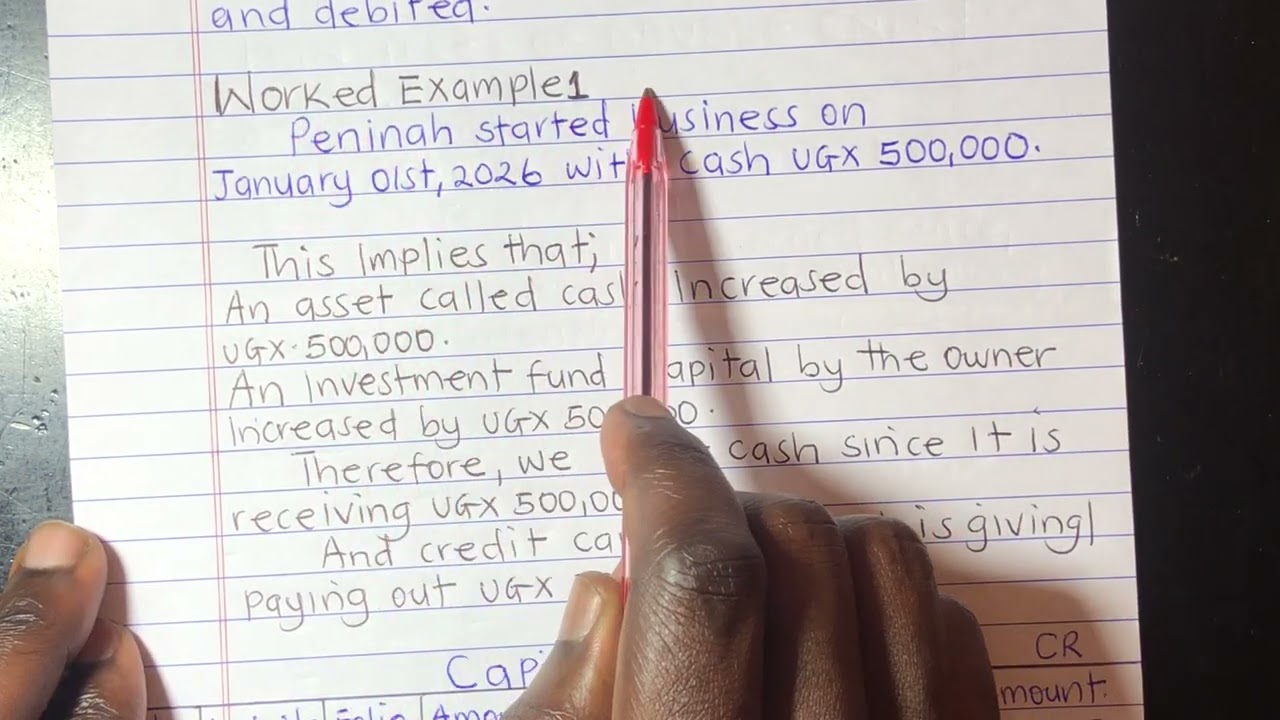 and debited.
Worked Example1
Peninah started business on
January 01st, 2026 with cash UGX 500,000.
This Implies that;
An asset called cash Increased by
UGX. 500,000.
An Investment fund capital by the owner
Increased by UGX 500,000.
Therefore, we cash since It is
receiving UGX 500,00
And credit is giving/
paying out UGX
CR
Folio Amount.